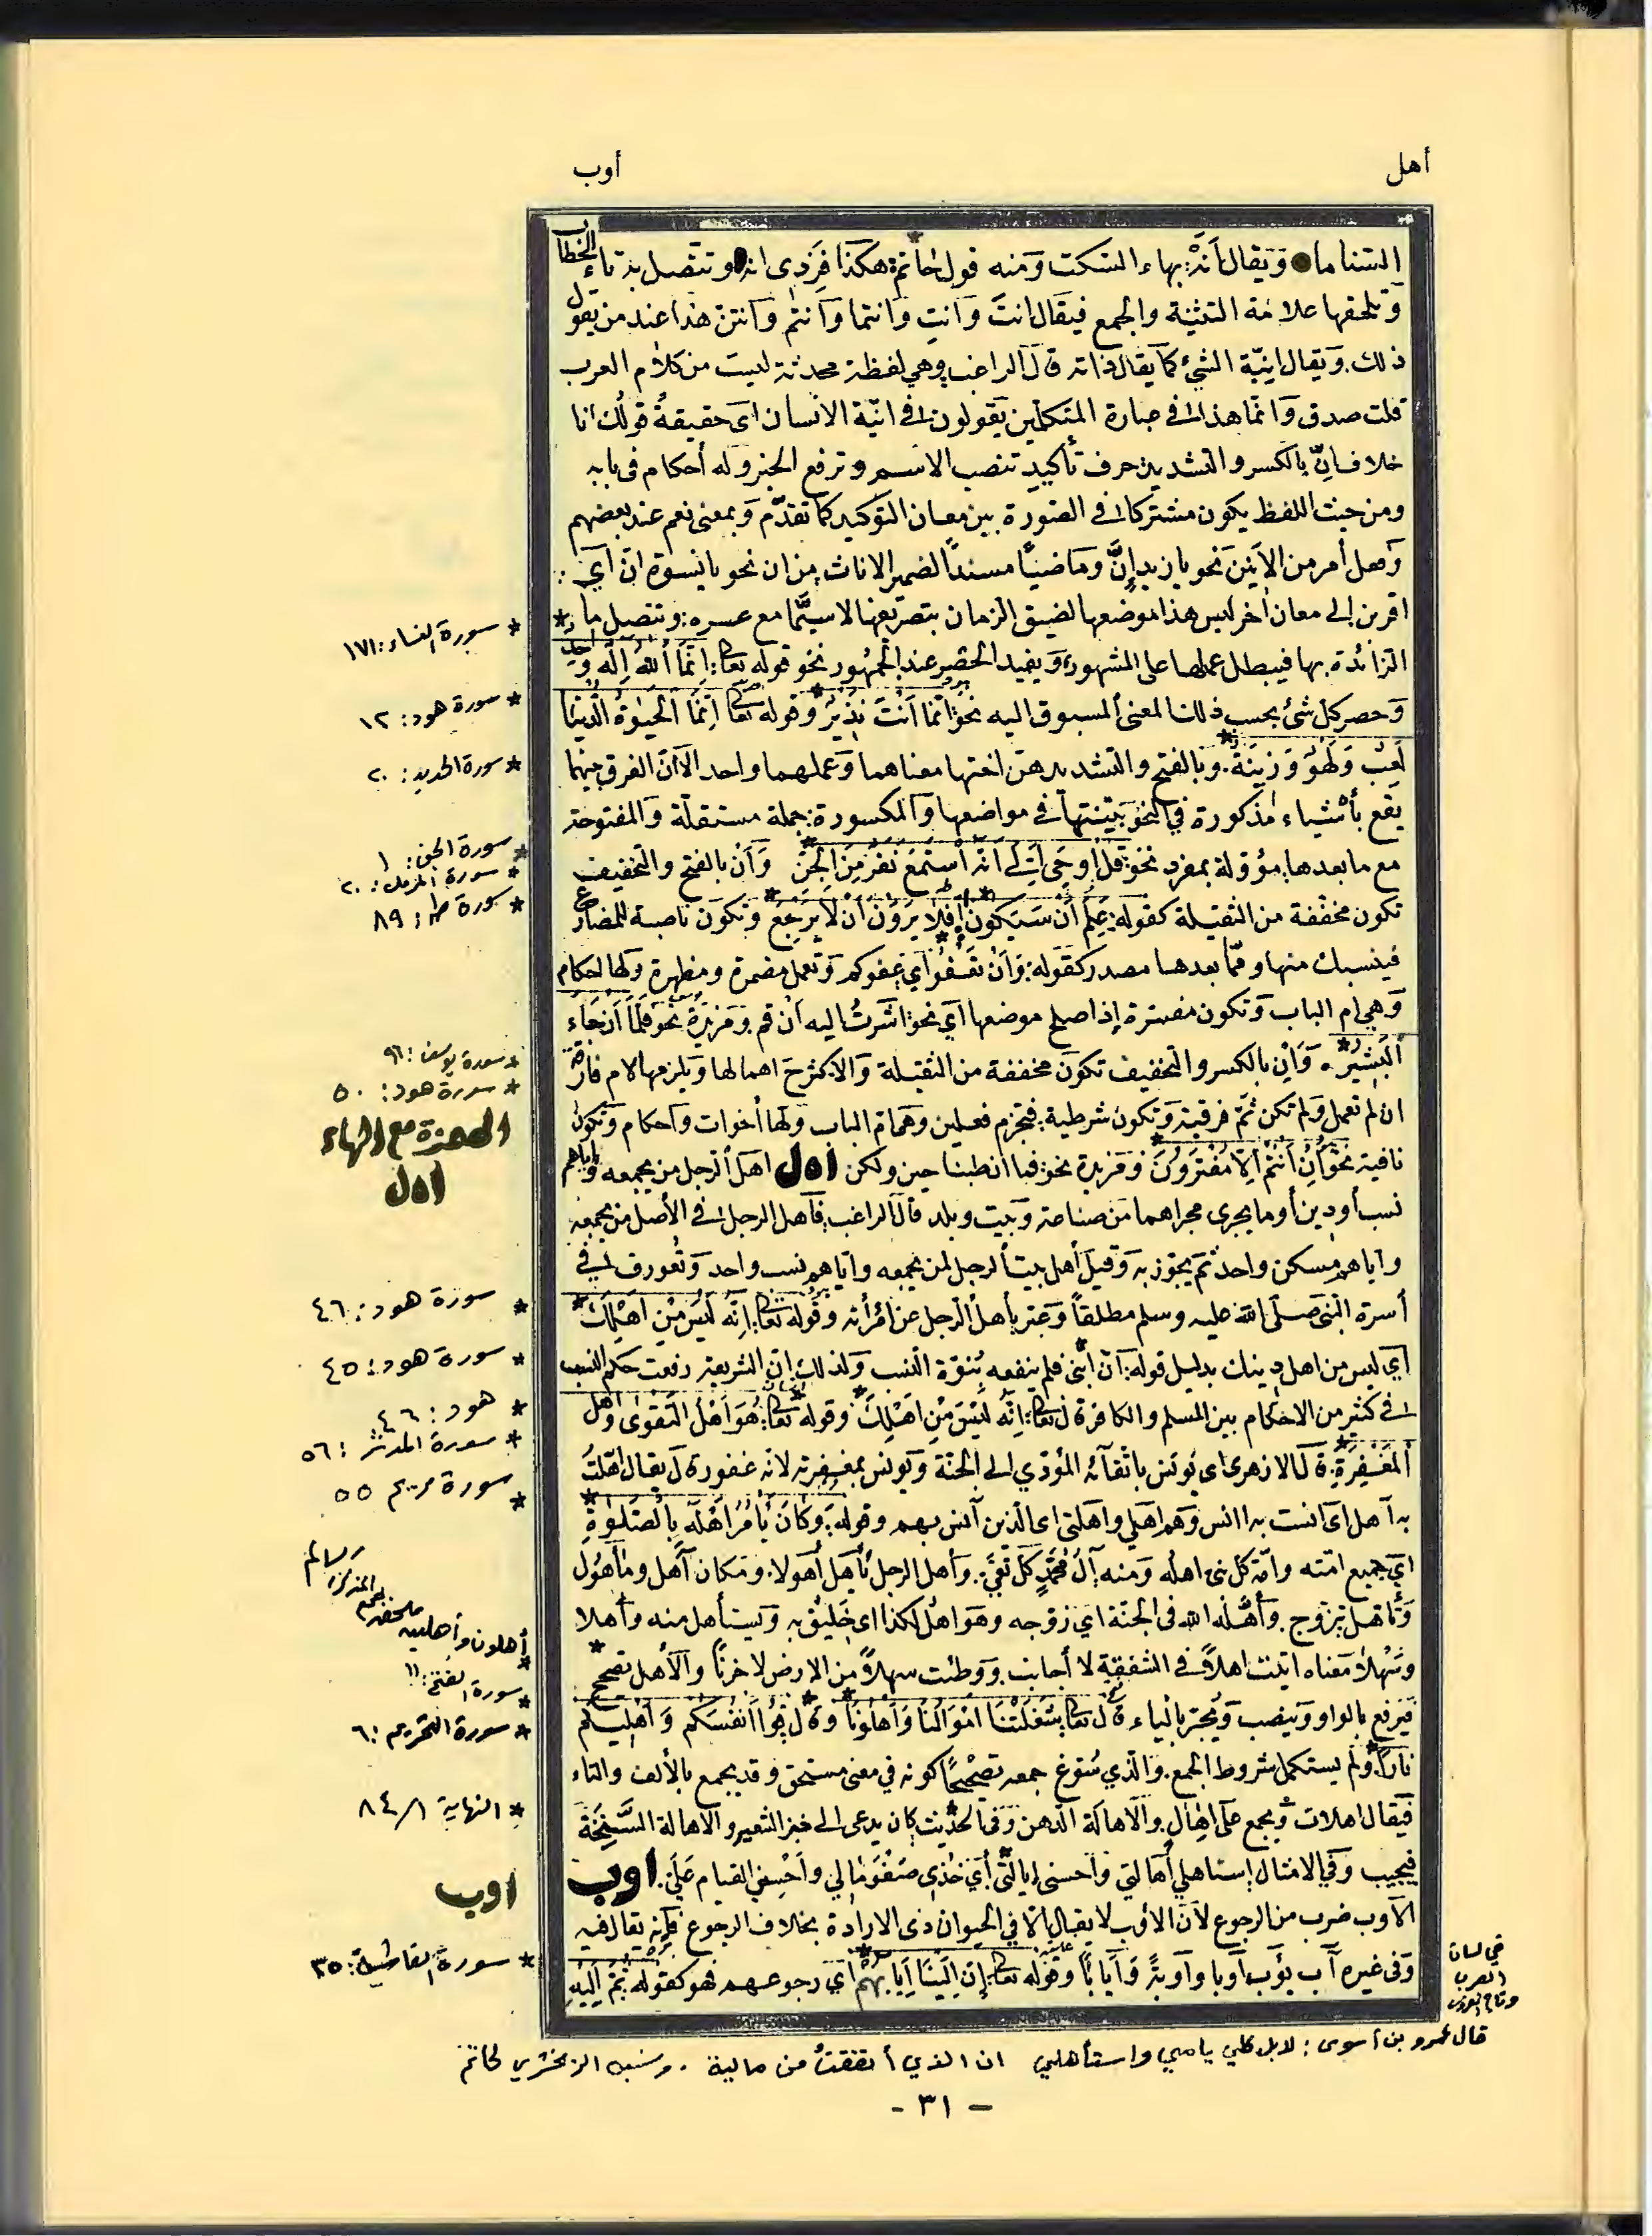 أهل
أوب
السناما وَيقال أَنَهْ بهاء السكت وَمنه قول حَاتم: هكذا فَزدى انه وتتصل به تاء الخطاب
وَتلحقها علامَة التثنية والجمع فيقال انتَ وَانتِ وَانتما وَانتم وَانتن هذا عند من يقول
ذلك. وَيقال انِيّة الشئ كما يقال ذاته قال الراغب وهي لفظة محدثة ليست من كلام العرب
قلت صدق وَانما هذا في عبارة المتكلمين يقولون في انيّة الانسان اى حقيقة قولك انا
خلاف إنّ بالكسر والتشديد حرف تأكيد تنصب الاسم وترفع الخبر وله أحكام فى بابه
ومن حيث اللفظ يكون مشتركا في الصورة بين معان التوكيد كما تقدّم وَبمعنى نعم عند بعضهم
وَفعل أمر من الاَنين نحو يا زيد إنَّ وَماضيًا مسندًا لضمير الاناث من ان نحو يا نسوة انّ اَي
اقربن إلى معان اُخر ليس هذا موضعها لضيق الزمان بتصريفها لاسيَّما مع عسره: وتتصل ما
الزائدة بها فيبطل عملها على المشهور، وَيفيد الحصر عند الجمهور نحو قوله تعالى: اِنَّمَا اَللهُ اِلَهٌ وَاحِدٌ
وَحصر كل شئ بحسب ذلك المعنى المسبوق اليه نحو: انَّمَا اَنْتَ نَذِيرٌ وَقوله تعالى اِنَّمَا اَلْحَيٰوةُ الدُّنْيَا
لَعِبٌ وَلَهْوٌ وَزِينَةٌ. وَبالفتح والتشديد هى اختها معناهما وَعملهما واحد الاّ انّ الفرق بينهما
يقع بأشياء مذكورة في النحو بَيّنتها في مواضعها وَالمكسورة: جملة مستقلّة وَالمفتوحة
مع ما بعدها مؤوّلة بمفرد نحو: قُلْ اُوحِىَ اِلَىَّ اَنَّهُ اسْتَمَعَ نَفَرٌ مِنَ الْجِنِّ وَاَنْ بالفتح والتخفيف
تكون مخفّفة من الثقيلة كقوله: عَلِمَ اَنْ سَيَكُون اَفَلَا يَرَوْنَ اَنْ لاَ يَرْجِعُ وَتكون ناصبة للمضارع
فينسبك منها وممّا بعدها مصدر كقوله: وَاَنْ تَعْفُوا اَي عفوكم وَتعمل مضمرة ومظهرة ولها احكام
وَهي ام الباب وَتكون مفسّرة إذا صلح موضعها اَي نحو: اشَرتُ اليه اَنْ قم. وَمزيدة نحو فَلَمَّا اَنْ جَاءَ
اَلْبَشِيرُ. وَاِنْ بالكسر والتخفيف تكون مخففة من الثقيلة وَالاكثر ح اهمالها وَيلزمها لام فارقة
ان لم تعمل وَلم تكن ثَمّ قرينة وَتكون شرطية: فتجزم فعلين وَهى ام الباب وَلها أخوات وَاحكام وَتكون
نافية نحو: اِنْ اَنْتُمْ اِلاَّ مُفْتَرُونَ وَمزيدة نحو: فما ان طبنا جبن ولكن اهل اهل الرجل من يجمعه واياهم
نسب أو دين أو ما يجرى مجراهما من صناعة وَبيت وبلد قال الراغب: فأهل الرجل في الأصل من يجمعه
واياهم مسكن واحد ثمّ يجوّز به وَقيل أهل بيت الرجل لمن يجمعه واياهم نسب واحد وَتُعورف في
أسرة النبى صلى الله عليه وسلم مطلقاً وَعبّر بأهل الرجل عن امرأته وقوله تعالى: اِنَّه لَيْسَ مِنْ اَهْلِكَ
أي ليس من اهل دينك بدليل قوله: انّ ابنى فلم ينفعه بُنوّة النسب ولذلك إنّ الشريعة رفعت حكم النسب
في كثير من الاحكام بين المسلم والكافر قال تعالى: اِنَّهُ لَيْسَ مِنْ اَهْلِكَ وقوله تعالى: هُوَ اَهْلُ التَّقْوٰى وَاَهْلُ
اَلْمَغْفِرَةِ: قال الازهرى اى يُونس باتّقائه المؤدّي الى الجنّة وَيونس بمغفرته لانّه غفور قال يقال اَهّلتُ
به آهل اى انست به اانس وَهم اهلي واهلتى اى الذين آنس بهم وقوله: وَكَانَ يَأْمُرُ اَهْلَهُ بِالصَّلٰوةِ
اي جميع امّته وامّة كل نبى اهله وَمنه: آلُ مُحَمَّدٍ كُلُّ تَقِيّ. وَأهل الرجل يأهل أهولا. وَمكان آهل ومأهول
وَتأهل تزوج. وَأهَّلَه الله فى الجنّة اي زوّجه وهوَ اهل لكذا اى خليق به وَيستأهل منه وأهلا
وَسَهْلاً معناه اتيت اهلاً في الشفقة لا أجانب. وَوطئت سهلاً من الارض لا حَزنا والأهل يصحح
فيرفع بالواو وينصب وَيُجرّ بالياء قال تعالى شَغَلَتْنَا اَمْوَالُنَا وَاَهْلُونَا وقال قُوا اَنْفُسَكُم وَاَهْلِيكُم
نَارًا. وَلم يستكمل شروط الجمع. وَالّذي سُوّغ جمعه تصحيحًا كونه في معنى مستحق وقد يجمع بالألف والتاء
فيقال اهلات وَيُجمع على اهال. والاهالة الدهن وَفى الحديث كان يدعى الى خبز الشعير والاهالة السَّنِخَة
فيجيب وَفي الامثال إستاهلي أهالتي وَأحسنى إيالتى أي خُذى صَفْوَ مالي وَاَحْسِنى القيام عَلَىّ. اوب
الأوب ضرب من الرجوع لاَنّ الأوب لا يقال الاّ فى الحيوان ذى الارادة بخلاف الرجوع فإنه يقال فيه
وَفى غيره آب يؤب أوبا وَأوبةً وَاَيابًا وَقوله تعالى: اِنّ اِلَيْنَا اِيَابَهُمْ اي رجوعهم فهو كقوله: ثمّ اِلَيْهِ
* سورة النساء: ١٧١
* سورة هود: ١٢
* سورة الحديد: ٢٠
* سورة الجن: ١
* سورة المزمل: ٢٠
* سورة طه: ٨٩
* سورة يوسف: ٩٦
* سورة هود: ٥٠
الهمزة مع الهاء
اهل
* سورة هود: ٤٦
* سورة هود: ٤٥
* هود: ٤٦
* سورة المدثر: ٥٦
* سورة مريم ٥٥
أهلون وأهليه
* سورة الفتح: ١١
* سورة التحريم: ٦
* النهاية ٨٤/١
اوب
* سورة الغاشية: ٢٥
في لسان
العرب
وتاج العروس
قال عمرو بن أسوى: لا بل كلي يا مي واستأهلي ان الذي أنفقتُ من ماليه . ونسبه الزمخشري لحاتم
- ٣١ -